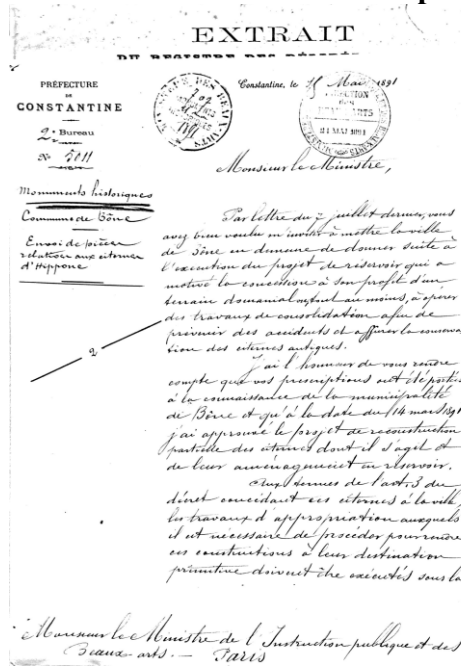 EXTRAIT
DU REGISTRE DES
PRÉFECTURE
DE
CONSTANTINE
2e Bureau
No 5011
Monuments historiques
Commune de Bône
Envoi de pièces
relatives aux citernes
d'Hippone
2
Constantine, le 15 Mai 1891
DIRECTION
DES
BEAUX-ARTS
21 MAI 1891
Monsieur le Ministre,
Par lettre du 7 juillet dernier, vous
avez bien voulu m'inviter à mettre la ville
de Bône en demeure de donner suite à
l'exécution du projet de réservoir qui a
motivé la concession à son profit d'un
terrain domanial ou, tout au moins, à opérer
des travaux de consolidation afin de
prévenir des accidents et assurer la conserva
tion des citernes antiques.
J'ai l'honneur de vous rendre
compte que vos prescriptions ont été portées
à la connaissance de la municipalité
de Bône et qu'à la date du 14 mars 1891
j'ai approuvé le projet de reconstruction
partielle des citernes dont il s'agit et
de leur aménagement en réservoir.
Aux termes de l'art. 3 du
décret concédant ces citernes à la ville,
les travaux d'appropriation auxquels
il est nécessaire de procéder pour rendre
ces constructions à leur destination
primitive doivent être exécutés sous la
Monsieur le Ministre de l'Instruction publique et des
Beaux-arts. — Paris